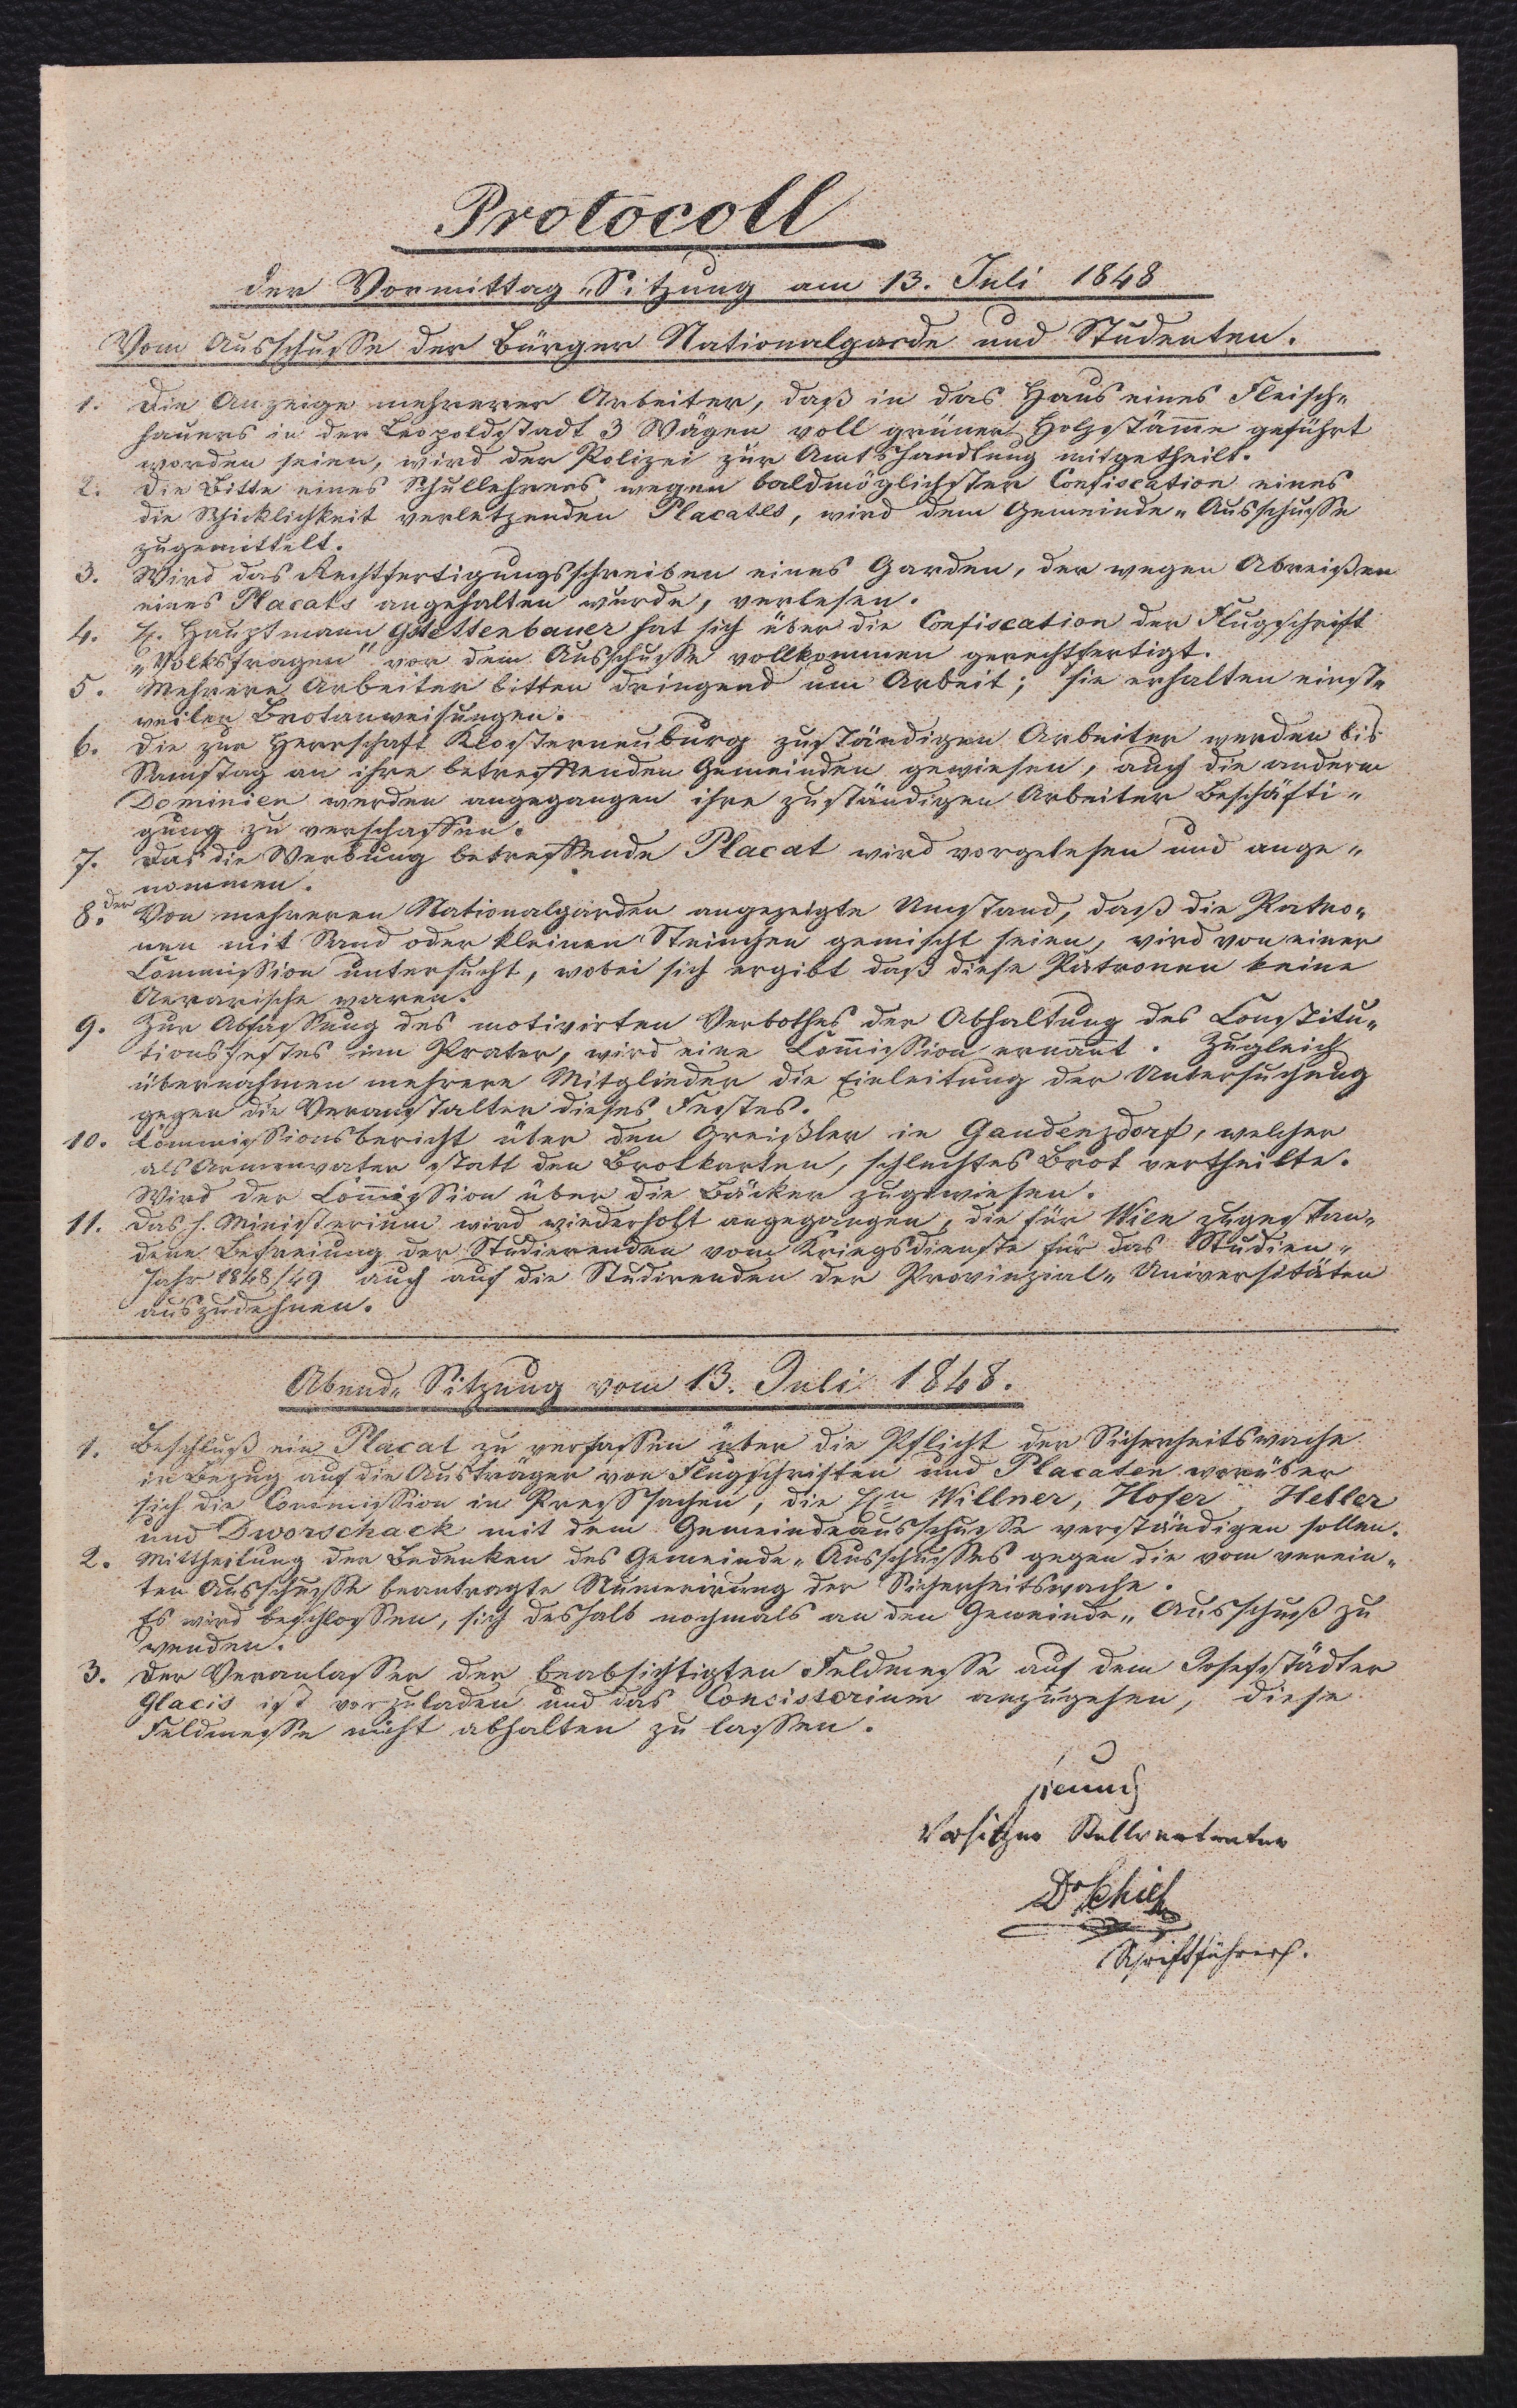 Protocoll
der Vormittag-Sitzung am 13. Juli 1848
Vom Ausschusse der Bürger Nationalgarde und Studenten.
1. Die Anzeige mehrerer Arbeiter, daß in das Haus eines Fleisch-
hauers in der Leopoldstadt 3 Wägen voll grüner Holzstäm̄e geführt
worden seien, wird der Polizei zur Amtshandlung mitgetheilt.
2. Die Bitte eines Schullehrers wegen baldmöglichster Confiscation eines
die Schicklichkeit verletzenden Placates, wird dem Gemeinde-Ausschusse
zugemittelt.
3. Wird das Rechtfertigungsschreiben eines Garden, der wegen Abreißen
eines Placats angehalten wurde, verlesen.
4. H. Hauptmann Gstettenbauer hat sich über die Confiscation der Flugschrift
„Volksfragen" vor dem Ausschusse vollkommen gerechtfertigt.
5. Mehrere Arbeiter bitten dringend um Arbeit; sie erhalten einst-
weilen Brotanweisungen.
6. Die zur Herrschaft Klosterneuburg zuständigen Arbeiter werden bis
Samstag an ihre betreffenden Gemeinden gewiesen, auch die andern
Dominien werden angegangen ihre zuständigen Arbeiter Beschäfti-
gung zu verschaffen.
7. Das die Werbung betreffende Placat wird vorgelesen und ange-
nommen.
8. der Von mehreren Nationalgarden angezeigte Umstand, daß die Patro-
nen mit Sand oder kleinen Steinchen gemischt seien, wird von einer
Commission untersucht, wobei sich ergibt daß diese Patronen keine
Aerarische waren.
9. Zur Abfassung des motivirten Verbothes der Abhaltung des Constitu-
tionsfestes im Prater, wird eine Com̄ission ernan̄t. Zugleich
übernahmen mehrere Mitglieder die Einleitung der Untersuchung
gegen die Veranstalter dieses Festes.
10. Commissionsbericht über den Greißler in Gaudenzdorf, welcher
als Armenvater statt den Brotkarten, schlechtes Brot vertheilte.
Wird der Com̄ission über die Bäcker zugewiesen.
11. Das h. Ministerium wird wiederholt angegangen, die für Wien zugestan-
dene Befreiung der Studierenden vom Kriegsdienste für das Studien-
Jahr 1848/49 auch auf die Studirenden der Provinzial-Universitäten
auszudehnen.
Abend-Sitzung vom 13. Juli 1848.
1. Beschluß ein Placat zu verfassen über die Pflicht der Sicherheitswache
in Bezug auf die Austräger von Flugschriften und Placaten worüber
sich die Commission in Presssachen, die Hn Willner, Hofer, Heller
und Dworschack mit dem Gemeindeausschusse verständigen sollen.
2. Mittheilung der Bedenken des Gemeinde-Ausschusses gegen die vom verein-
ten Ausschusse beantragte Numerirung der Sicherheitswache.
Es wird beschlossen, sich deshalb nochmals an den Gemeinde-Ausschuß zu
wenden.
3. Der Veranlasser der beabsichtigten Feldmesse auf dem Josefstädter
Glacis ist vorzuladen und das Consistorium anzugehen, diese
Feldmesse nicht abhalten zu lassen.
Vorsitzer Stellvertreter
Dr
Schriftführer.